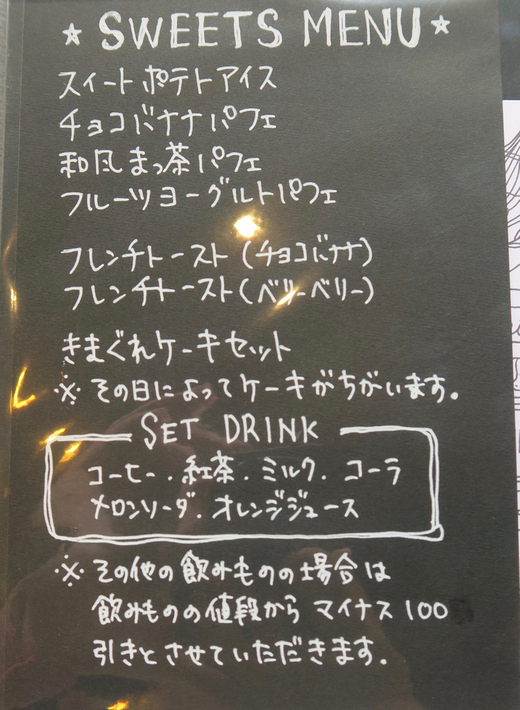 ★ SWEETS MENU ★
スイートポテトアイス
チョコバナナパフェ
和風まっ茶パフェ
フルーツヨーグルトパフェ
フレンチトースト(チョコバナナ)
フレンチトースト(ベリーベリー)
きまぐれケーキセット
※ その日によってケーキがちがいます。
SET DRINK
コーヒー.紅茶.ミルク.コーラ
メロンソーダ.オレンジジュース
※ その他の飲みものの場合は
飲みものの値段からマイナス100
引きとさせていただきます.